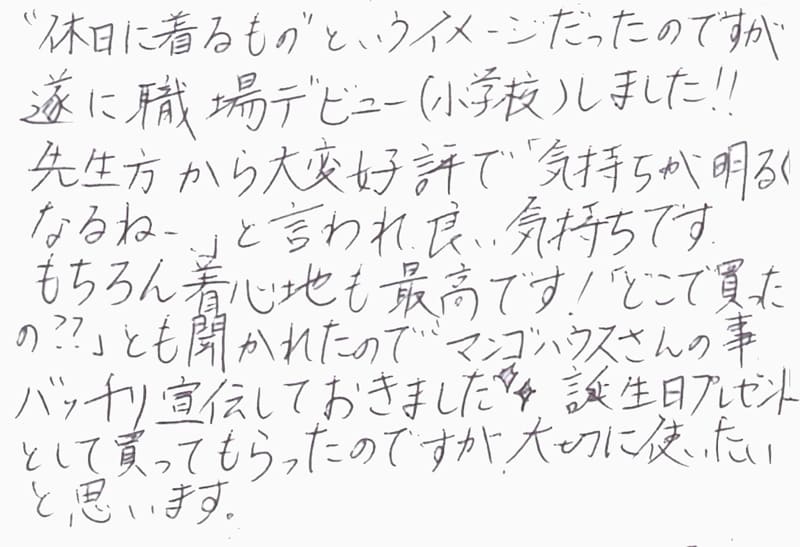 "休日に着るもの"というイメージだったのですが
遂に職場デビュー(小学校)しました!!
先生方から大変好評で「気持ちが明るく
なるねー。」と言われ、良い気持ちです
もちろん着心地も最高です!「どこで買った
の??」とも聞かれたので"マンゴハウスさんの事
バッチリ宣伝しておきました✨誕生日プレゼント
として買ってもらったのですが、大切に使いたい
と思います。